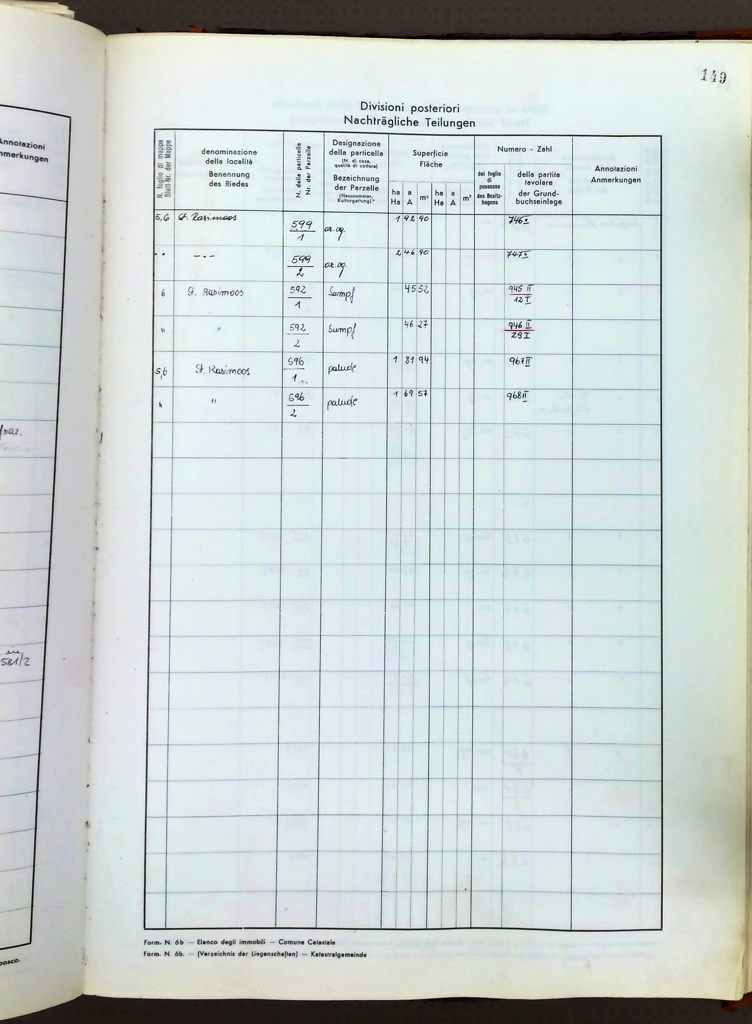 149
Annotazioni
Anmerkungen
Divisioni posteriori
Nachträgliche Teilungen
N. foglio di mappa
Blatt-Nr. der Mappe
denominazione
della località
Benennung
des Riedes
N. della particella
Nr. der Parzelle
Designazione
della particella
(N. di casa,
qualità di coltura)
Bezeichnung
der Parzelle
(Hausnummer,
Kulturgattung)
Superficie
Fläche
ha a m² ha a m²
Ha A Ha A
Numero - Zahl
del foglio
di
possesso
des Besitz-
bogens
della partita
tavolare
der Grund-
buchseinlage
Annotazioni
Anmerkungen
5,6 St. Rasimoos 599/1 ar.og. 1 92 90 746 I
" " —"— 599/2 ar.og. 2 46 90 747 I
6 St. Rasimoos 592/1 Sumpf 45 52 945 II
12 I
" " 592/2 Sumpf 46 27 946 II
29 I
5,6 St. Rasimoos 696/1 palude 1 81 94 967 II
" " 696/2 palude 1 69 57 968 II
581/2
Form. N. 6b — Elenco degli immobili — Comune Catastale
Form. N. 6b. — (Verzeichnis der Liegenschaften) — Katastralgemeinde